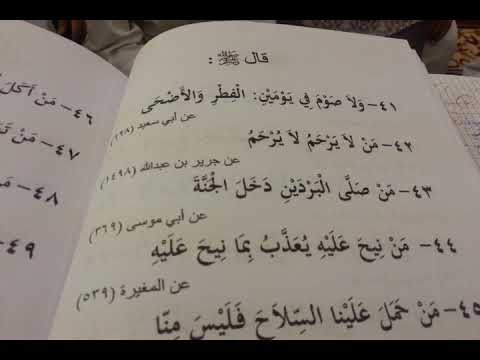 قال ﷺ :
٤١- وَلاَ صَوْمَ فِي يَوْمَيْنِ: الْفِطْرِ وَالأَضْحَى
عن أبي سعيد
٤٢- مَنْ لاَ يَرْحَمُ لاَ يُرْحَمُ
عن جرير بن عبدالله (١٤٩٨)
٤٣- مَنْ صَلَّى الْبَرْدَيْنِ دَخَلَ الْجَنَّةَ
عن أبي موسى (٣٦٩)
٤٤- مَنْ نِيحَ عَلَيْهِ يُعَذَّبُ بِمَا نِيحَ عَلَيْهِ
عن المغيرة (٥٣٩)
٤٥- مَنْ حَمَلَ عَلَيْنَا السِّلاَحَ فَلَيْسَ مِنَّا
٤٦- مَنْ أَكَلَ
٤٧- مَنْ
٤٨-
٤٩